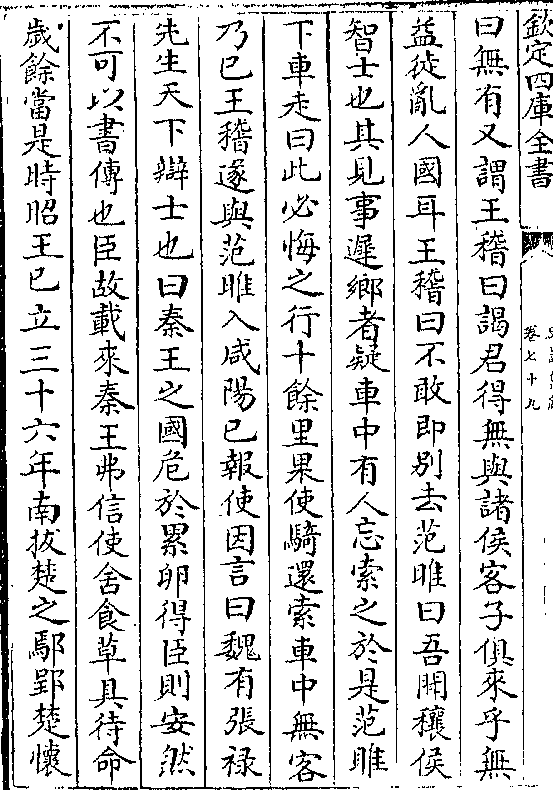 欽定四庫全書
卷七十九
曰無有又謂王稽曰謁君得無與諸侯客子俱來乎無
益徒亂人國耳王稽曰不敢即别去范睢曰吾聞穰侯
智士也其見事遲鄉者疑車中有人忘索之於是范睢
下車走曰此必悔之行十餘里果使騎還索車中無客
乃已王稽遂與范睢入咸陽已報使因言曰魏有張禄
先生天下辯士也曰秦王之國危於累卵得臣則安然
不可以書傳也臣故載來秦王弗信使舍食草具待命
歲餘當是時昭王已立三十六年南拔楚之鄢郢楚懷